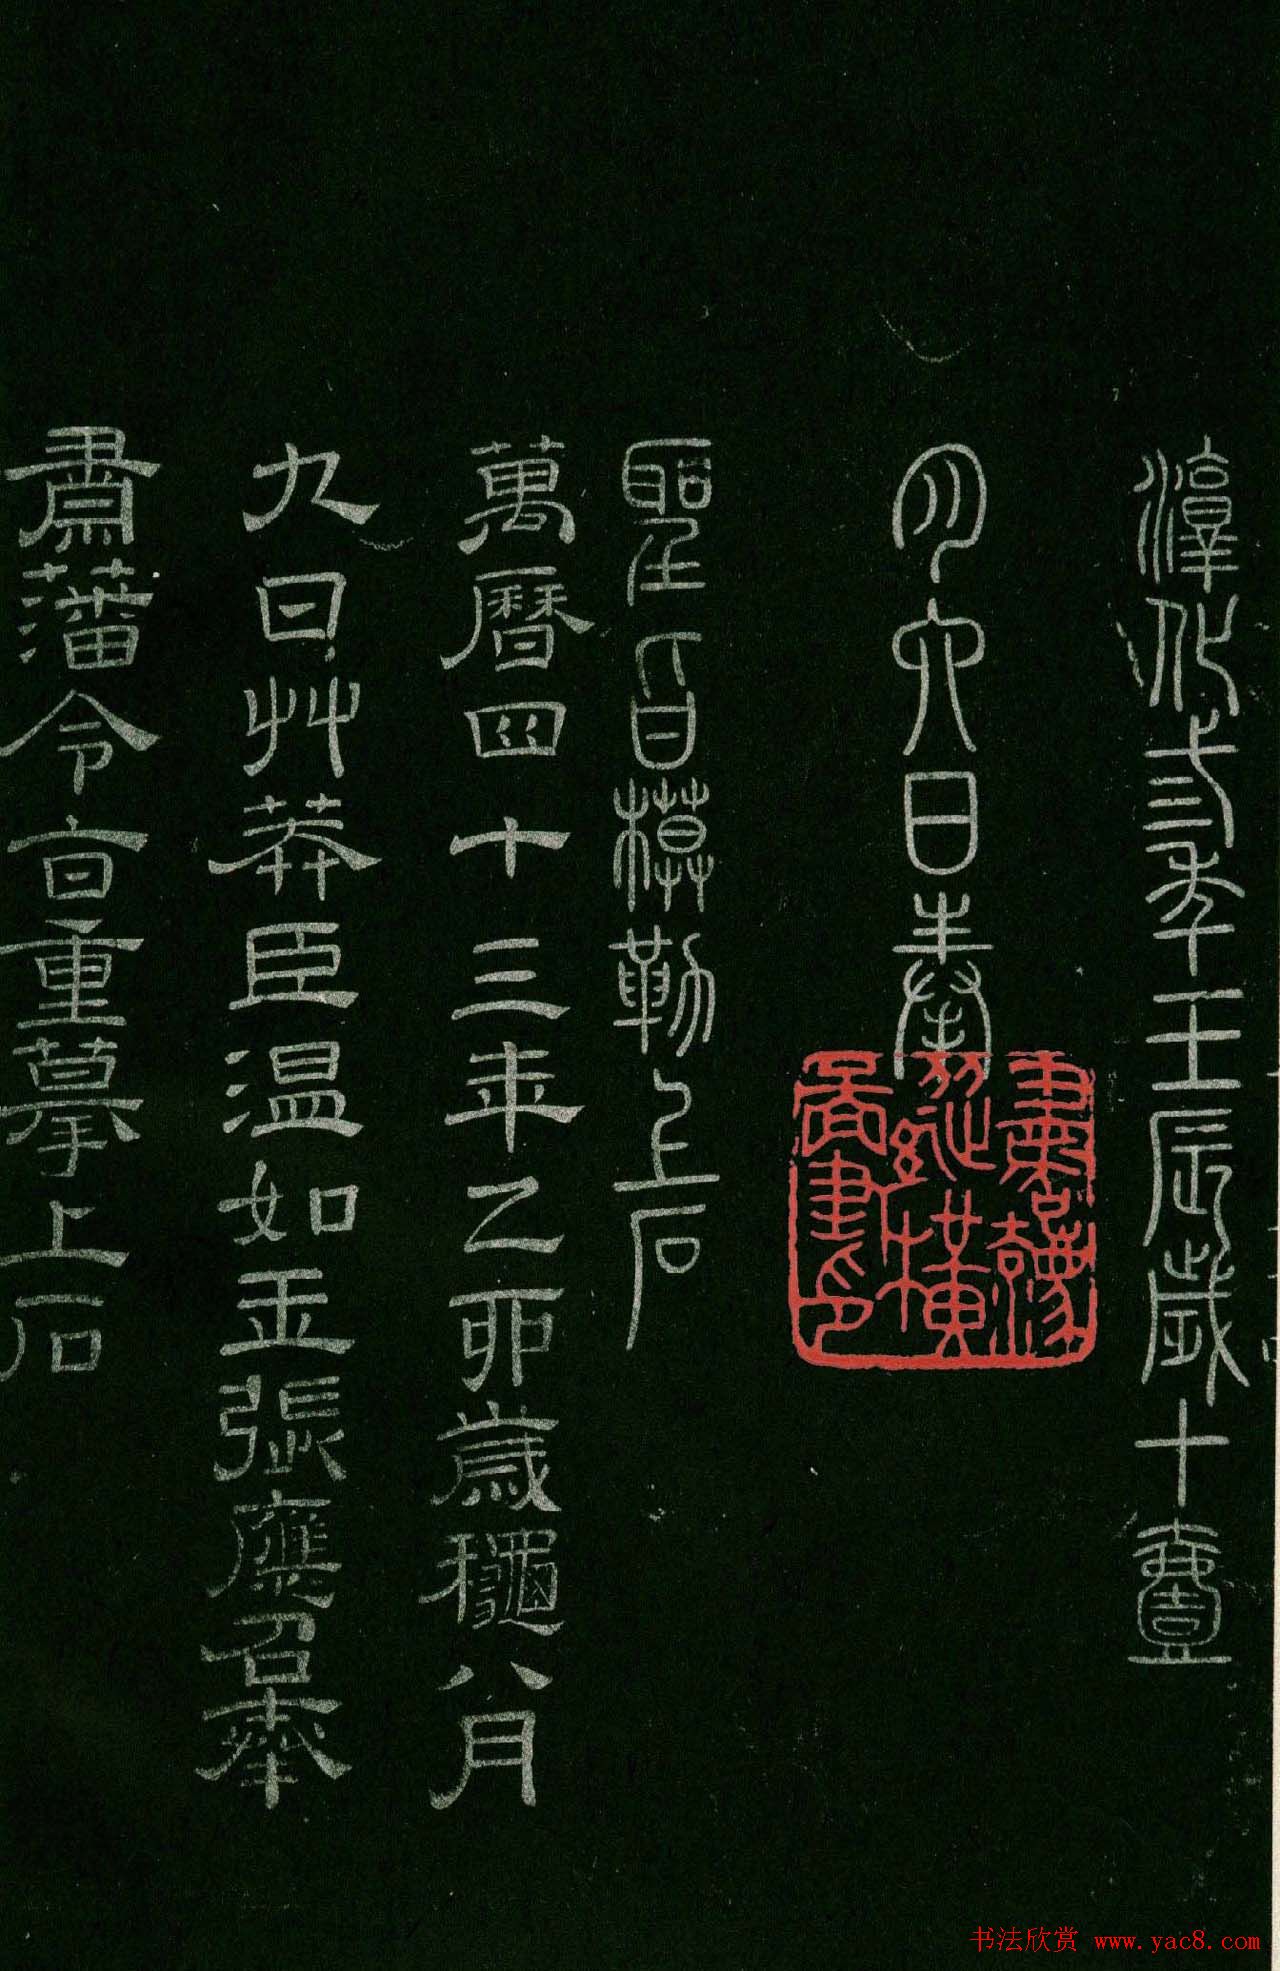 淳化三年壬辰歲十壹
月六日奉
聖旨模勒上石
萬曆四十三年乙卯歲穐八月
九日艸莽臣温如玉張應召奉
肅藩令旨重摹上石
书法欣赏 www.yac8.com